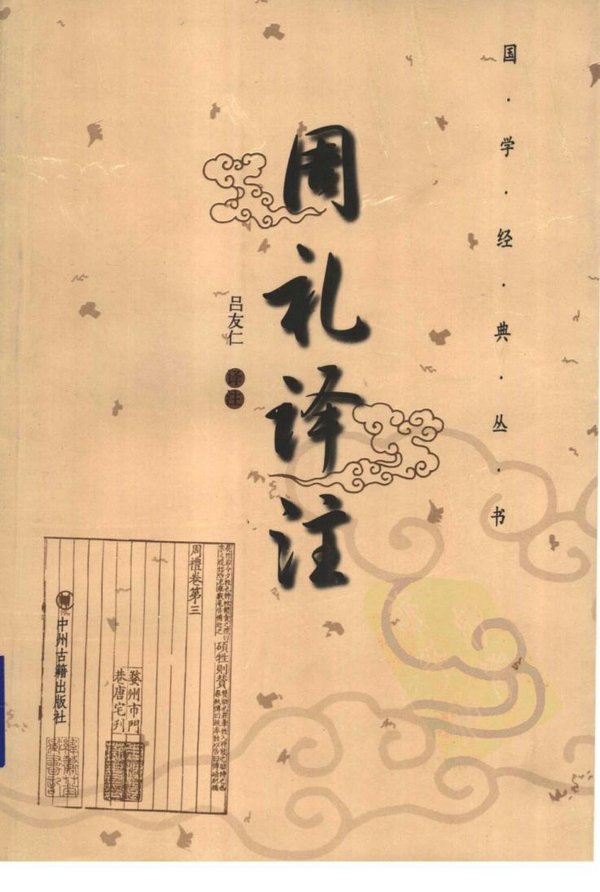 国·学·经·典·丛·书
周礼译注
吕友仁 译注
周禮卷第三
碩牲則贊
婺州市門
巷唐宅刋
中州古籍出版社